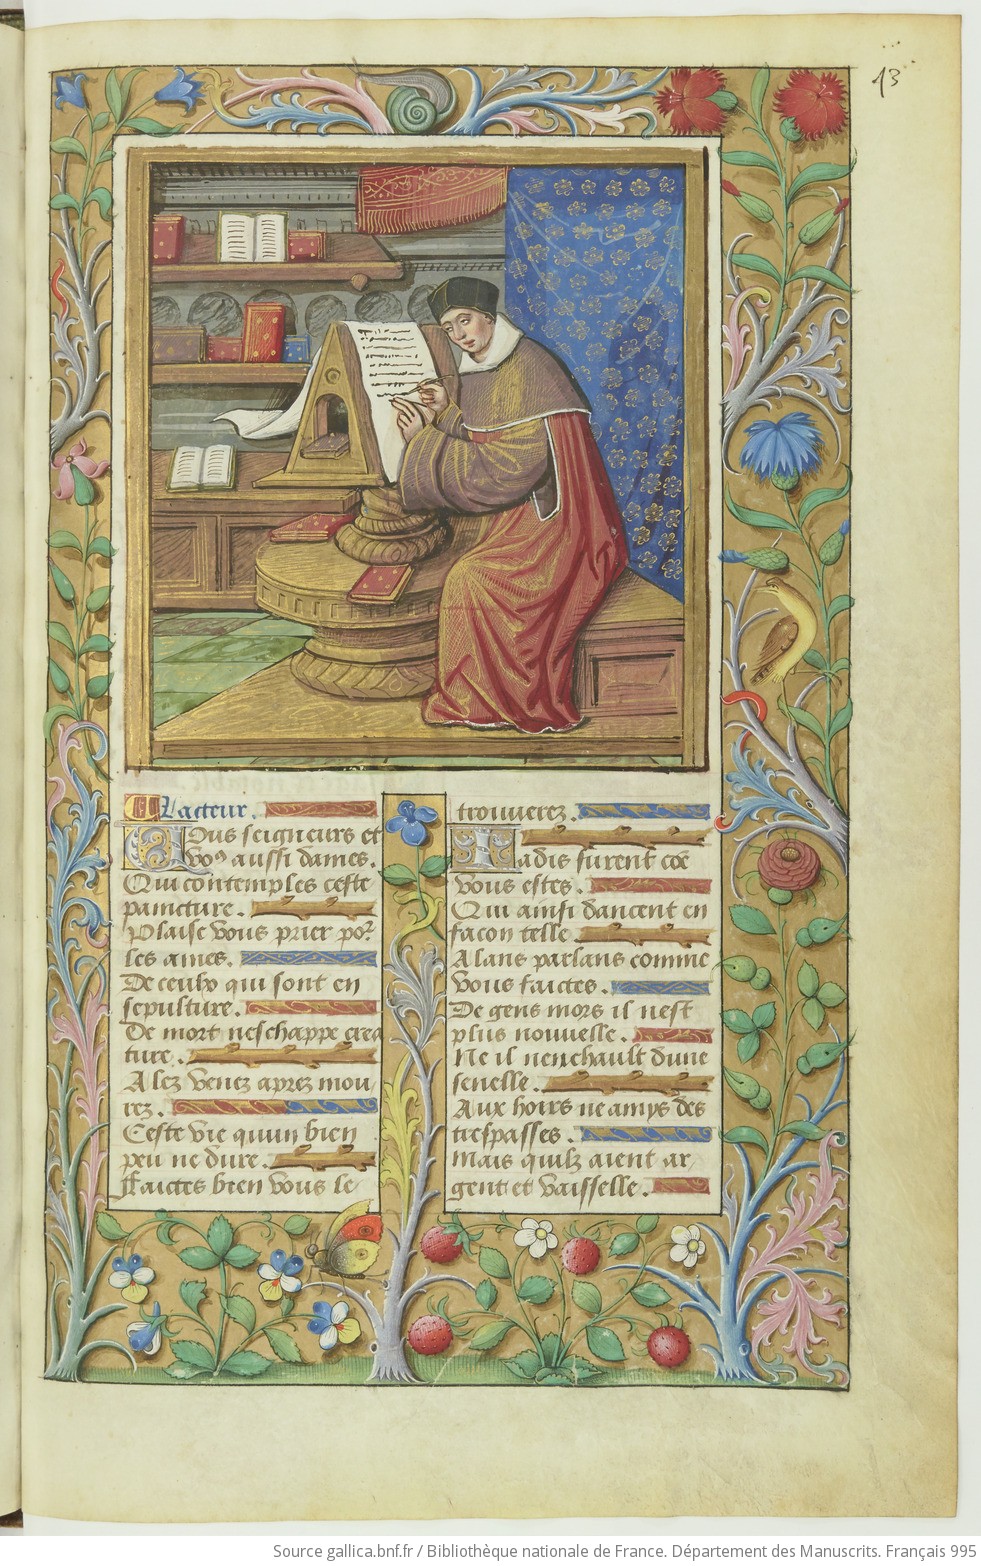 13
Lacteur.
Vous seigneurs et
voꝰ aussi dames.
Qui contemples ceste
paincture.
Plaise vous prier poꝛ
les ames.
De ceulx qui sont en
sepulture.
De mort neschappe crea
ture.
Alez venez apres mou
rez.
Ceste vie quun bien
peu ne dure.
Faictes bien vous le
trouuerez.
Iadis furent cōe
vous estes.
Qui ainsi dancent en
facon telle
Alans parlans comme
vous faictes.
De gens mors il nest
plus nouuelle.
Ne il nenchault dune
senelle.
Aux hoirs ne amys des
trespasses.
Mais quilz aient ar
gent et vaisselle.
Source gallica.bnf.fr / Bibliothèque nationale de France. Département des Manuscrits. Français 995